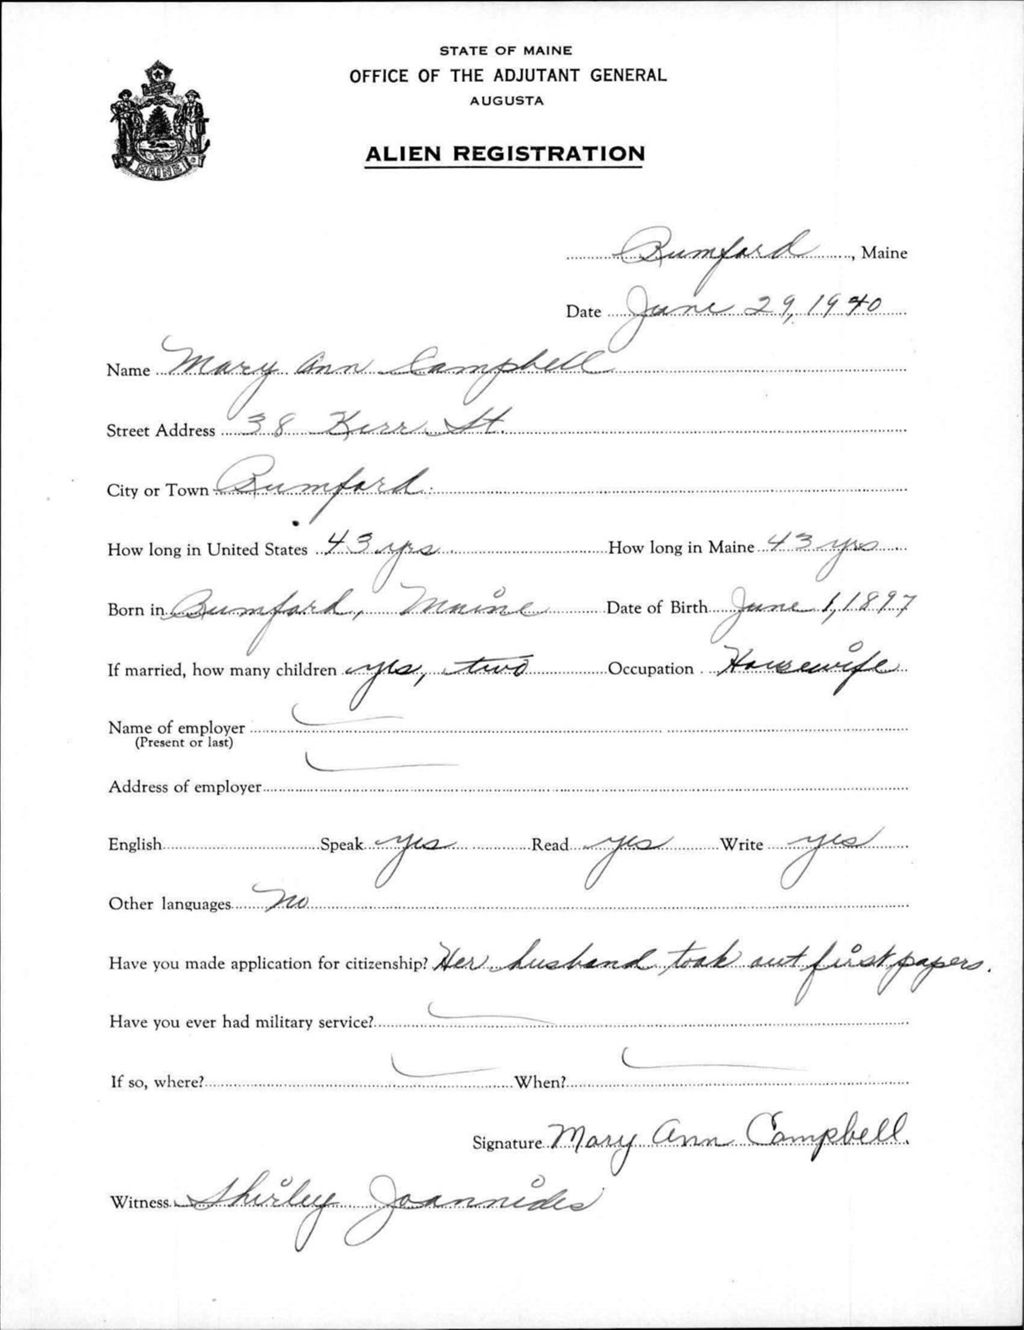 STATE OF MAINE
OFFICE OF THE ADJUTANT GENERAL
AUGUSTA
ALIEN REGISTRATION
MAINE
Rumford, Maine
Date June 29, 1940
Name Mary Ann Campbell
Street Address 38 Kerr St.
City or Town Rumford.
How long in United States 43 yrs How long in Maine 43 yrs
Born in Rumford, Maine Date of Birth June 1, 1897
If married, how many children yes, two Occupation Housewife
Name of employer
(Present or last)
Address of employer
English Speak yes Read yes Write yes
Other languages no
Have you made application for citizenship? Her husband took out first papers.
Have you ever had military service?
If so, where? When?
Signature Mary Ann Campbell.
Witness Shirley Joannides